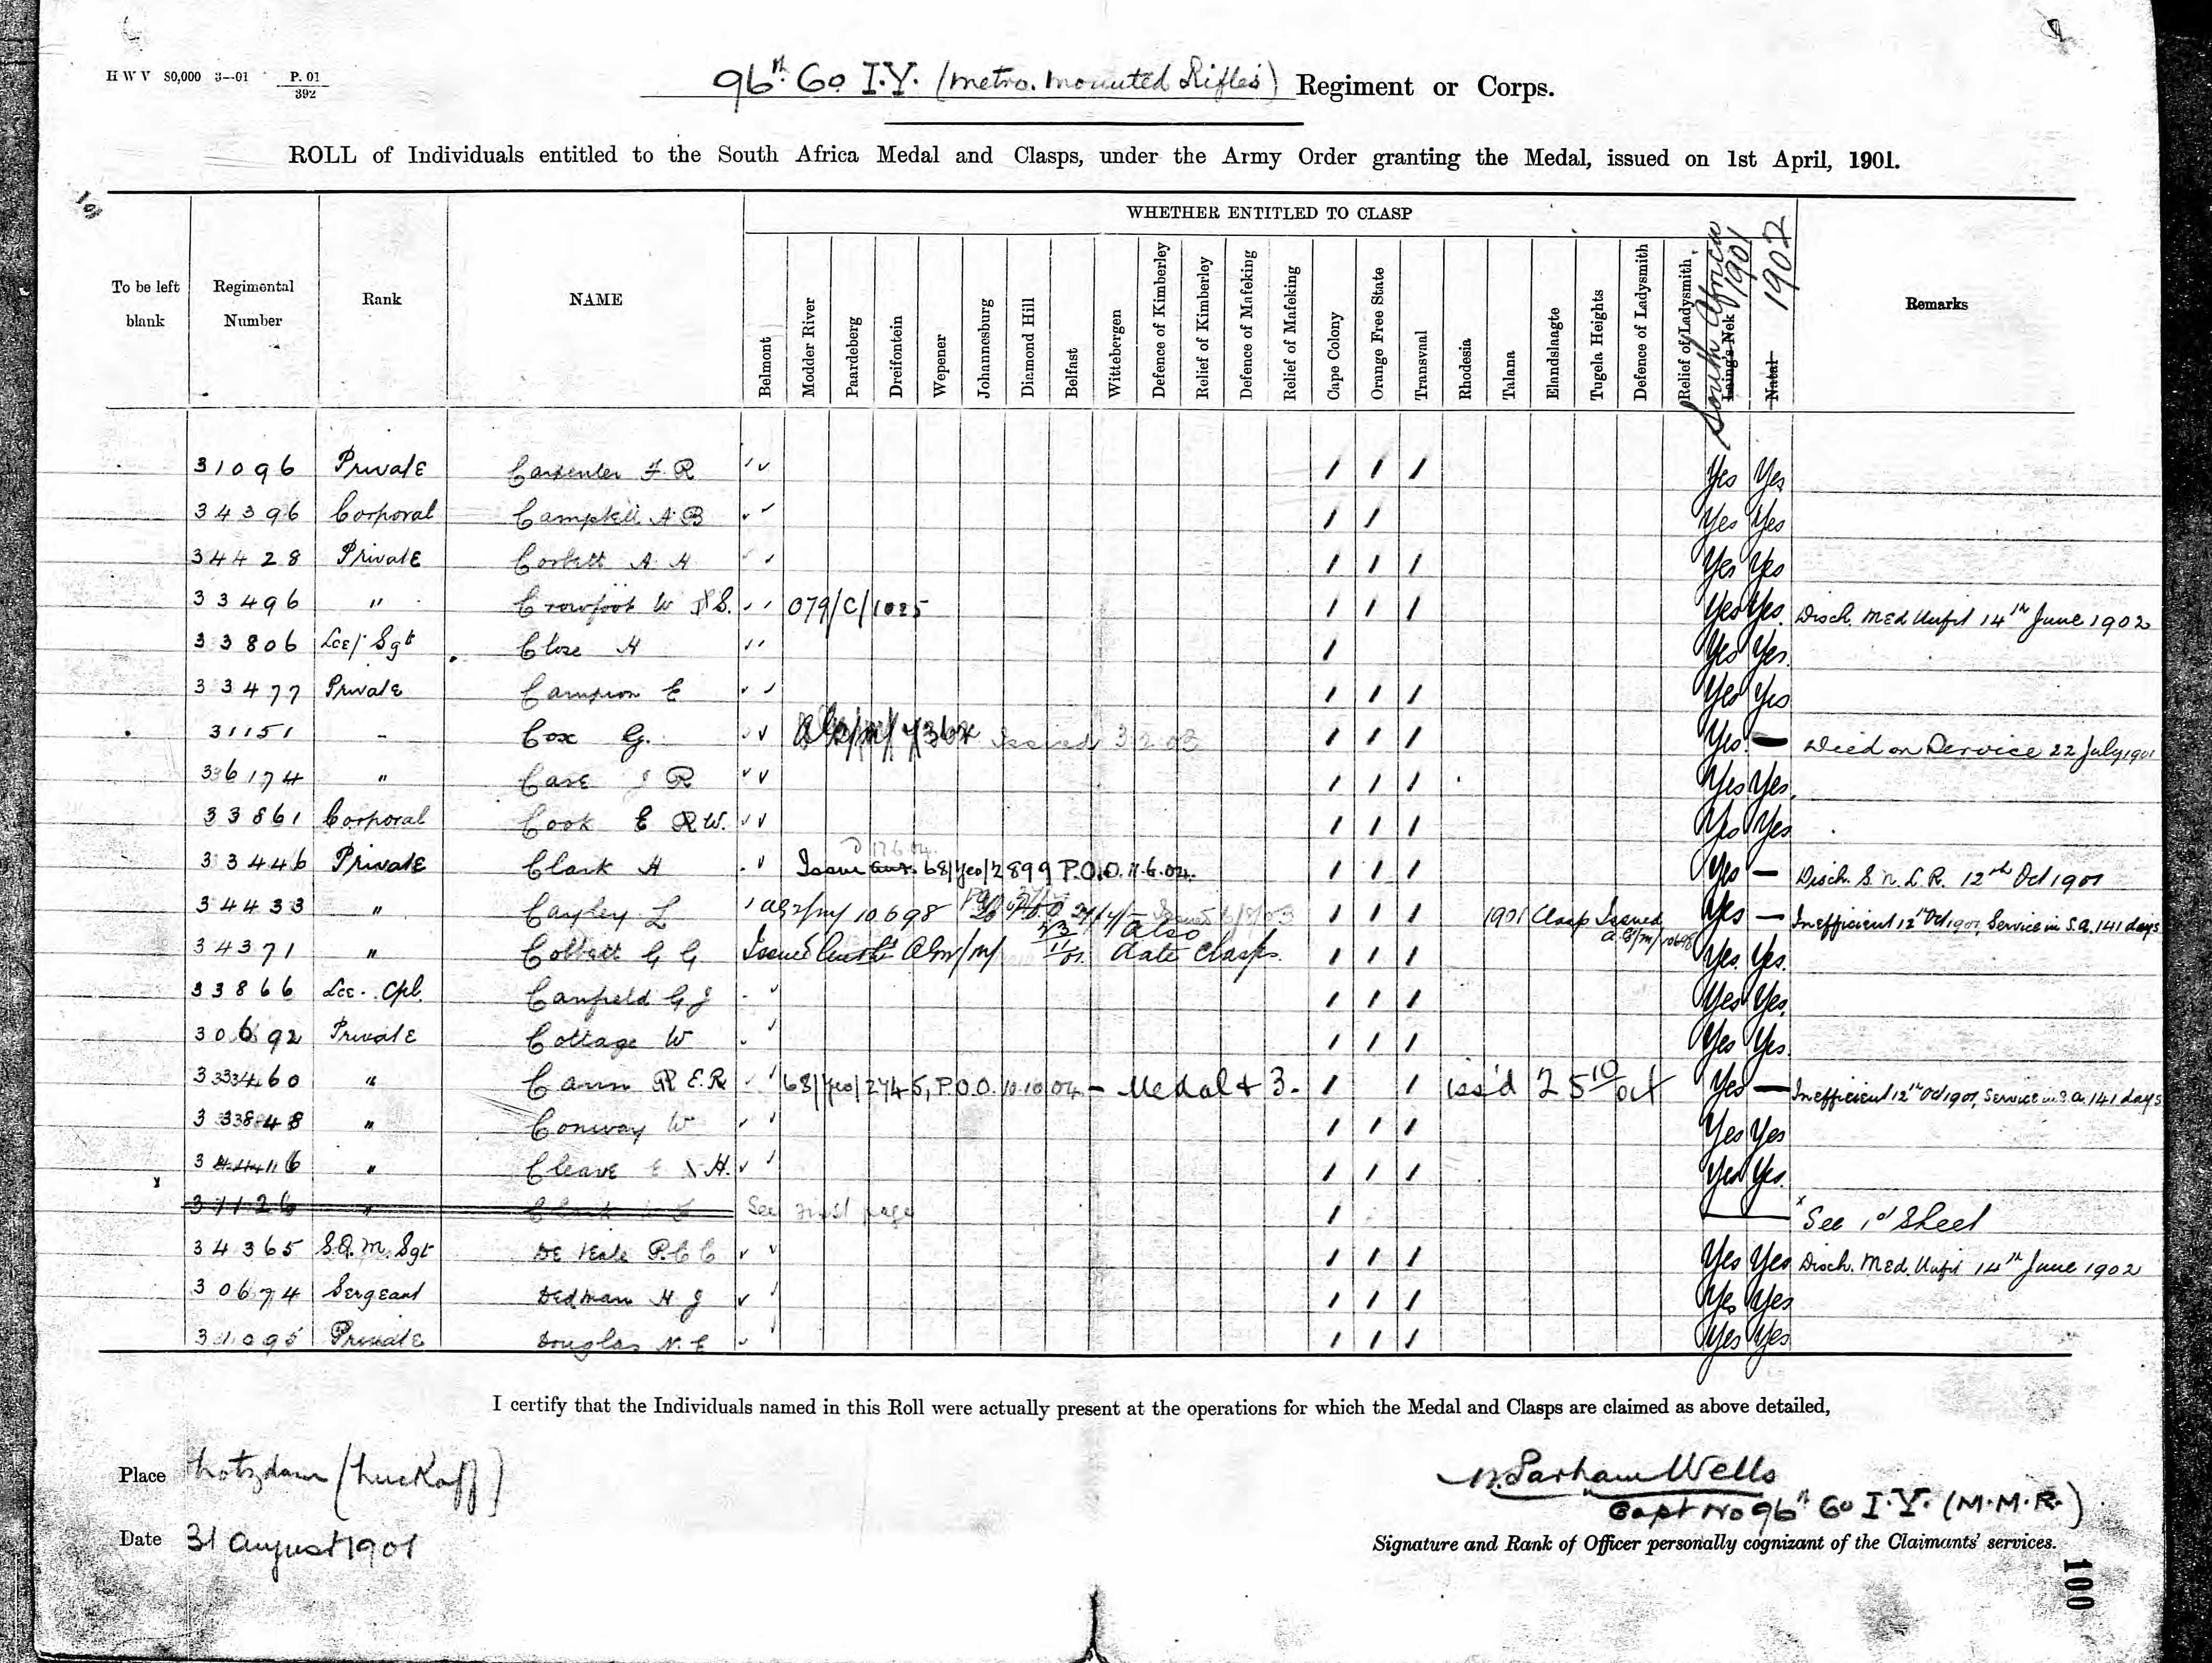 H W V 80,000 3—01 P. 01
392
96th Co I.Y. (Metro. Mounted Rifles) Regiment or Corps.
ROLL of Individuals entitled to the South Africa Medal and Clasps, under the Army Order granting the Medal, issued on 1st April, 1901.
WHETHER ENTITLED TO CLASP
To be left blank
Regimental Number
Rank
NAME
Belmont
Modder River
Paardeberg
Dreifontein
Wepener
Johannesburg
Diamond Hill
Belfast
Wittebergen
Defence of Kimberley
Relief of Kimberley
Defence of Mafeking
Relief of Mafeking
Cape Colony
Orange Free State
Transvaal
Rhodesia
Talana
Elandslaagte
Tugela Heights
Defence of Ladysmith
Relief of Ladysmith
Laing's Nek
South Africa 1901
Natal
1902
Remarks
31096 Private Carpenter F R / / / Yes Yes
34396 Corporal Campbell A B / / Yes Yes
34428 Private Corbett A H / / / Yes Yes
33496 " Crowfoot W S. 079/C/1025 / / / Yes Yes. Disch. Med Unfit 14th June 1902
33806 Lce/Sgt Close H / Yes Yes.
33477 Private Campion E / / / Yes Yes
31151 - Cox G. Issued 3 2 03 / / / Yes — Died on Service 22 July 1901
36174 " Case R / / / Yes Yes.
33861 Corporal Cook E R W. / / / Yes Yes
33446 Private Clark H Issue 68/Yeo/2899 P.O.O. 11.6.04. / / / Yes — Disch. S. N. L. R. 12th Oct 1901
34433 " Cayley L 10698 Issued 6/8/03 / / / 1901 Clasp Issued Yes — Inefficient 12th Oct 1901, Service in S.A. 141 days
34371 " Collett G G Issued also date clasps. / / / Yes. Yes.
33866 Lce. Cpl. Canfield G J / / / Yes Yes.
30692 Private Cottage W / / / Yes Yes.
33460 " Cann R E. R. 68/Yeo/2745, P.O.O. 10.10.04 — Medal & 3. / / iss'd 25/10 Oct Yes — Inefficient 12th Oct 1901, Service in S.A. 141 days
33848 " Conway W / / / Yes Yes
34416 " Cleave E H. / / / Yes Yes.
31126 " Clark W See first page / × See 1st Sheet
34365 S.Q.M. Sgt P. C C / / / Yes Yes Disch. Med. Unfit 14th June 1902
30674 Sergeant Dedman H J / / / Yes Yes
31095 Private Douglas N. E / / / Yes Yes
I certify that the Individuals named in this Roll were actually present at the operations for which the Medal and Clasps are claimed as above detailed,
Place Lotzdam (Luckoff)
Date 31 August 1901
N. Parham Wells
Capt No 96th Co I.Y. (M.M.R.)
Signature and Rank of Officer personally cognizant of the Claimants' services.
100